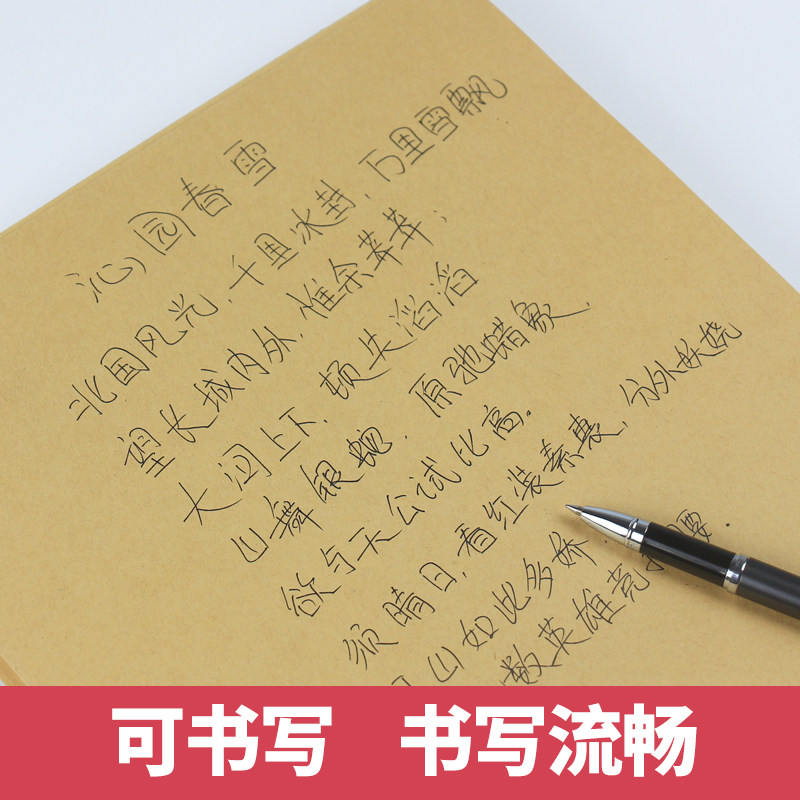 沁园春雪
北国风光，千里冰封，万里雪飘
望长城内外，惟余莽莽；
大河上下，顿失滔滔
山舞银蛇，原驰蜡象，
欲与天公试比高。
须晴日，看红装素裹，分外妖娆
山如此多娇
数英雄竞 腰．
可书写 书写流畅